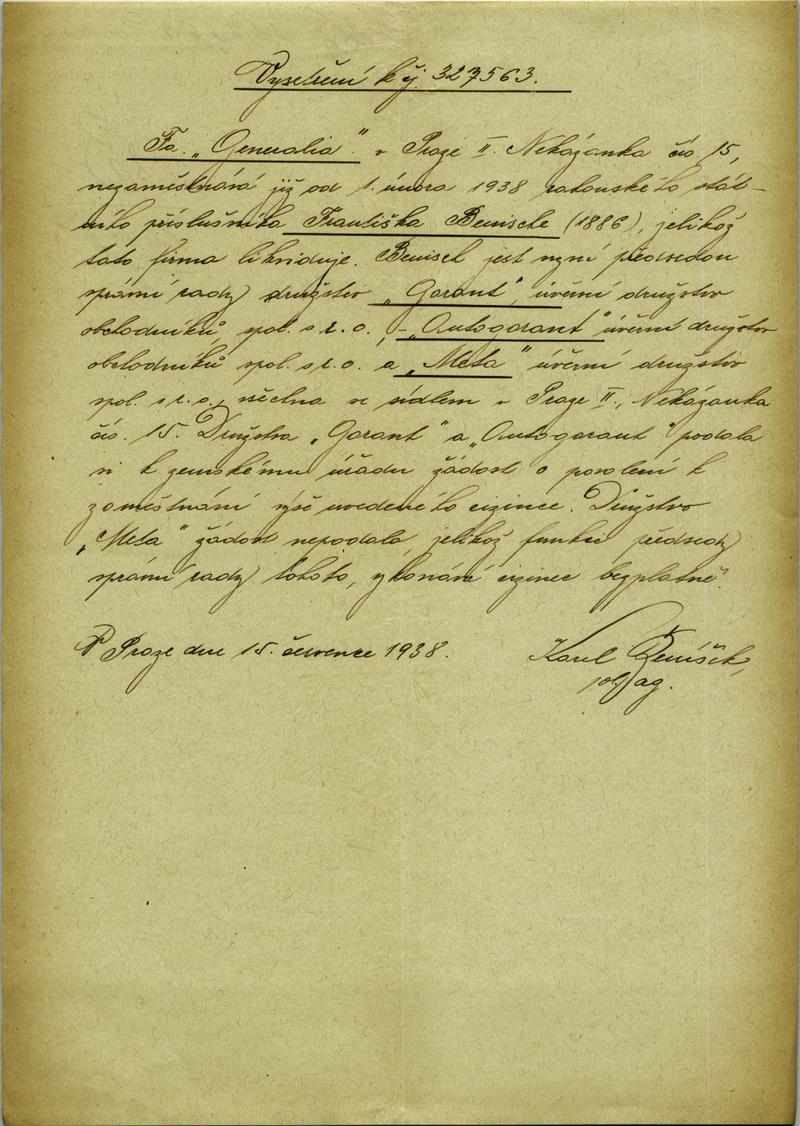 Vyšetření k čj. 327563.
Fa. „Generalia" v Praze II. Nekázanka čís. 15,
nezaměstnává již od 1. února 1938 rakouského stát-
ního příslušníka Františka Benische (1886), jelikož
tato firma likviduje. Benisch jest nyní předsedou
správní rady družstev „Garant", úvěrní družstvo
obchodníků, spol. s r. o., - „Autogarant" úvěrní družstvo
obchodníků spol. s r. o. a „Meta" úvěrní družstvo
spol. s r. o., všechna se sídlem v Praze II., Nekázanka
čís. 15. Družstva „Garant" a „Autogarant" podala
si k zemskému úřadu žádost o povolení k
zaměstnání výše uvedeného cizince. Družstvo
„Meta" žádost nepodalo, jelikož funkci předsedy
správní rady tohoto, vykonává cizinec bezplatně.
V Praze dne 15. července 1938.
Karel Ženíšek,
pol. ag.